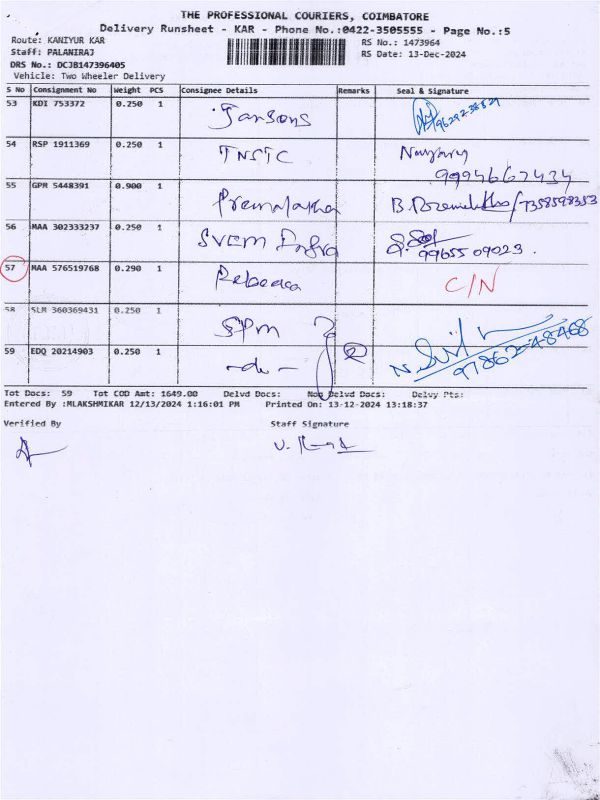 THE PROFESSIONAL COURIERS, COIMBATORE
Delivery Runsheet - KAR - Phone No.:0422-3505555 - Page No.:5
Route: KANIYUR KAR RS No.: 1473964
Staff: PALANIRAJ RS Date: 13-Dec-2024
DRS No.: DCJB147396405
Vehicle: Two Wheeler Delivery
S No Consignment No Weight PCS Consignee Details Remarks Seal & Signature
53 KDI 753372 0.250 1 Jansons
54 RSP 1911369 0.250 1 TNSTC 9994667434
55 GPM 5448391 0.900 1 Premalatha 7358598353
56 MAA 302333237 0.250 1 SVEM Infra 99655 09023.
57 MAA 576519768 0.290 1 Rebecca C/N
58 SLM 360369431 0.250 1 SPM
59 EDQ 20214903 0.250 1 -do- 2 97862-48468
Tot Docs: 59 Tot COD Amt: 1649.00 Delvd Docs: Non Delvd Docs: Delvy Pts:
Entered By :MLAKSHMIKAR 12/13/2024 1:16:01 PM Printed On: 13-12-2024 13:18:37
Verified By Staff Signature